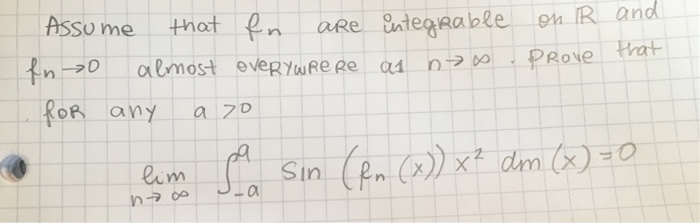 Assume that fn are integrable on IR and
fn→0 almost everywhere as n→∞. Prove that
for any a>0
lim n→∞ ∫_{-a}^{a} sin (fn(x)) x² dm(x)=0